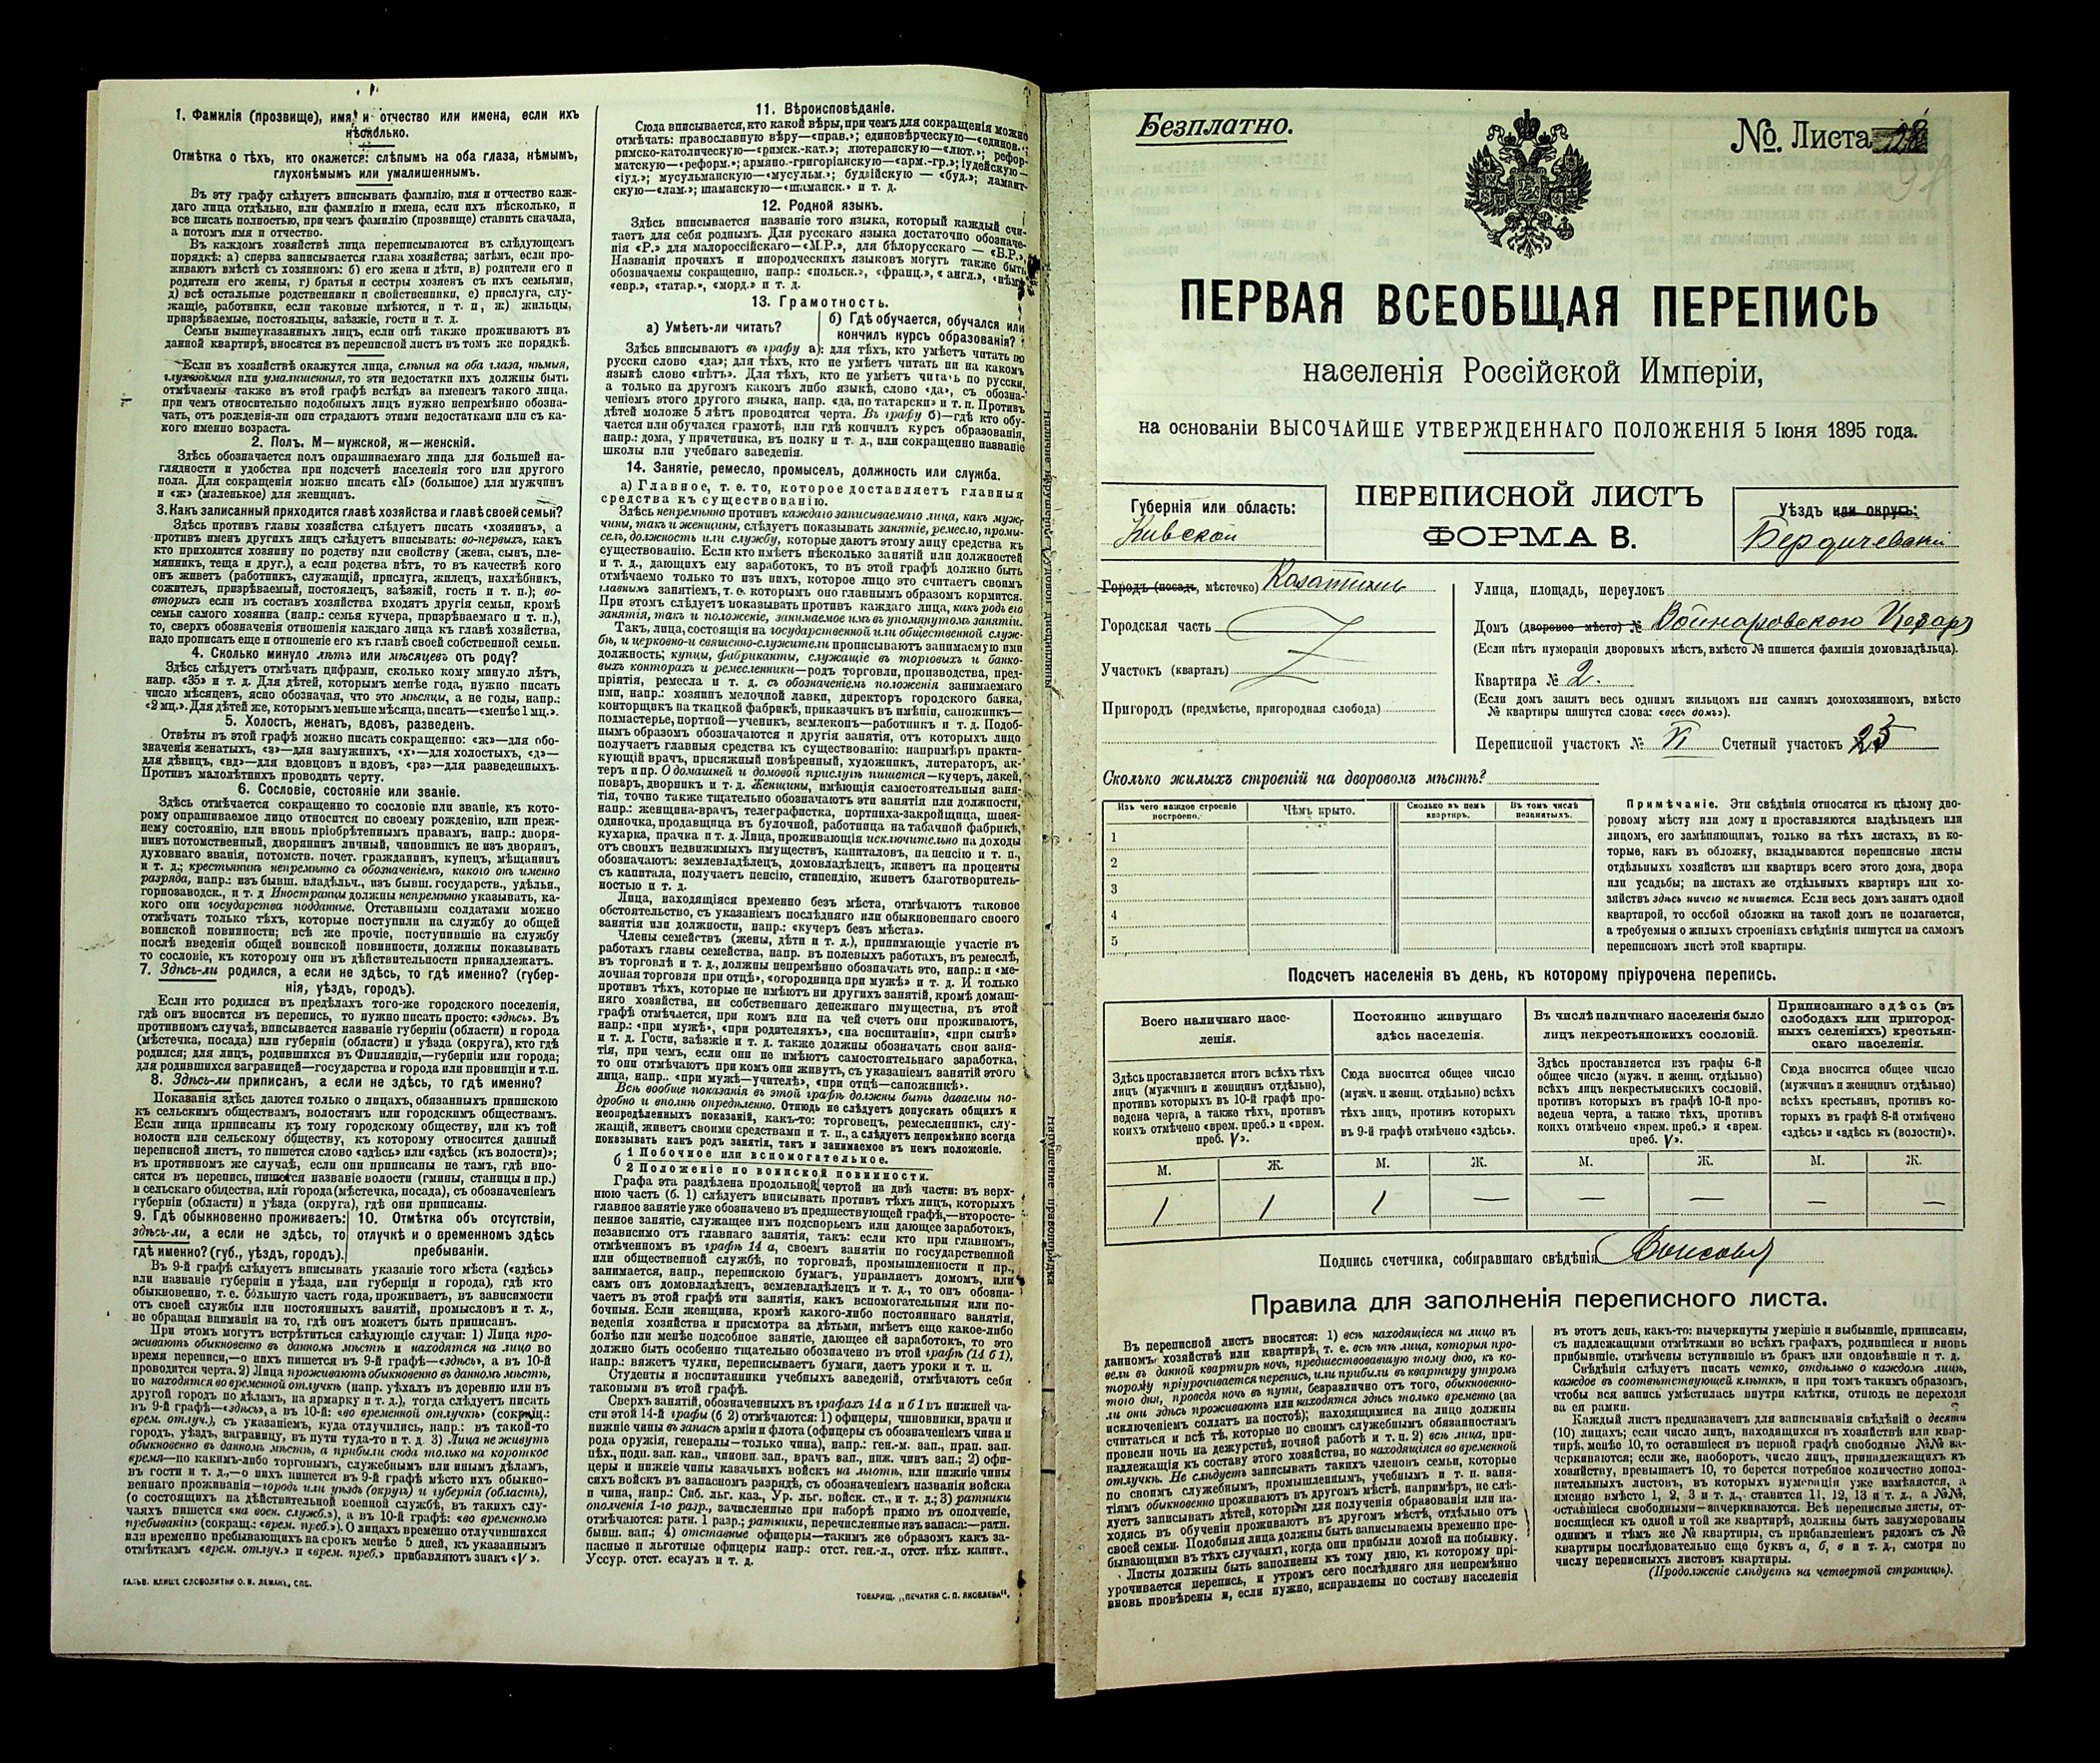 1. Фамилія (прозвище), имя и отчество или имена, если ихъ
нѣсколько.
Отмѣтка о тѣхъ, кто окажется: слѣпымъ на оба глаза, нѣмымъ,
глухонѣмымъ или умалишеннымъ.
Въ эту графу слѣдуетъ вписывать фамилію, имя и отчество каж-
даго лица отдѣльно, или фамилію и имена, если ихъ нѣсколько, и
все писать полностью, при чемъ фамилію (прозвище) ставить сначала,
а потомъ имя и отчество.
Въ каждомъ хозяйствѣ лица переписываются въ слѣдующемъ
порядкѣ: а) сперва записывается глава хозяйства; затѣмъ, если про-
живаютъ вмѣстѣ съ хозяиномъ: б) его жена и дѣти, в) родители его и
родители его жены, г) братья и сестры хозяевъ съ ихъ семьями,
д) всѣ остальные родственники и свойственники, е) прислуга, слу-
жащіе, работники, если таковые имѣются, и т. п., ж) жильцы,
призрѣваемые, постояльцы, заѣзжіе, гости и т. п.
Семьи вышеуказанныхъ лицъ, если онѣ также проживаютъ въ
данной квартирѣ, вносятся въ переписной листъ въ томъ же порядкѣ.
Если въ хозяйствѣ окажутся лица, слѣпыя на оба глаза, нѣмыя,
глухонѣмыя или умалишенныя, то эти недостатки ихъ должны быть
отмѣчаемы также въ этой графѣ вслѣдъ за именемъ такого лица,
при чемъ относительно подобныхъ лицъ нужно непремѣнно обозна-
чать, отъ рожденія-ли они страдаютъ этими недостатками или съ ка-
кого именно возраста.
2. Полъ. М—мужской, ж—женскій.
Здѣсь обозначается полъ опрашиваемаго лица для большей на-
глядности и удобства при подсчетѣ населенія того или другого
пола. Для сокращенія можно писать «М» (большое) для мужчинъ
и «ж» (маленькое) для женщинъ.
3. Какъ записанный приходится главѣ хозяйства и главѣ своей семьи?
Здѣсь противъ главы хозяйства слѣдуетъ писать «хозяинъ», а
противъ именъ другихъ лицъ слѣдуетъ вписывать: во-первыхъ, какъ
кто приходится хозяину по родству или свойству (жена, сынъ, пле-
мянникъ, теща и друг.), а если родства нѣтъ, то въ качествѣ кого
онъ живетъ (работникъ, служащій, прислуга, жилецъ, нахлѣбникъ,
сожитель, призрѣваемый, постоялецъ, заѣзжій, гость и т. п.); во-
вторыхъ если въ составъ хозяйства входятъ другія семьи, кромѣ
семьи самого хозяина (напр.: семья кучера, призрѣваемаго и т. п.),
то, сверхъ обозначенія отношенія каждаго лица къ главѣ хозяйства,
надо прописать еще и отношеніе его къ главѣ своей собственной семьи.
4. Сколько минуло лѣтъ или мѣсяцевъ отъ роду?
Здѣсь слѣдуетъ отмѣчать цифрами, сколько кому минуло лѣтъ,
напр. «35» и т. д. Для дѣтей, которымъ менѣе года, нужно писать
число мѣсяцевъ, ясно обозначая, что это мѣсяцы, а не годы, напр.:
«2 мц.». Для дѣтей же, которымъ меньше мѣсяца, писать—«менѣе 1 мц.».
5. Холостъ, женатъ, вдовъ, разведенъ.
Отвѣты въ этой графѣ можно писать сокращенно: «ж»—для обо-
значенія женатыхъ, «з»—для замужнихъ, «х»—для холостыхъ, «д»—
для дѣвицъ, «вд»—для вдовцовъ и вдовъ, «рз»—для разведенныхъ.
Противъ малолѣтнихъ проводить черту.
6. Сословіе, состояніе или званіе.
Здѣсь отмѣчается сокращенно то сословіе или званіе, къ кото-
рому опрашиваемое лицо относится по своему рожденію, или преж-
нему состоянію, или вновь пріобрѣтеннымъ правамъ, напр.: дворя-
нинъ потомственный, дворянинъ личный, чиновникъ не изъ дворянъ,
духовнаго званія, потомств. почет. гражданинъ, купецъ, мѣщанинъ
и т. д.; крестьянинъ непремѣнно съ обозначеніемъ, какого онъ именно
разряда, напр.: изъ бывш. владѣльч., изъ бывш. государств., удѣльн.,
горнозаводск., и т. д. Иностранцы должны непремѣнно указывать, ка-
кого они государства подданные. Отставными солдатами можно
отмѣчать только тѣхъ, которые поступили на службу до общей
воинской повинности; всѣ же прочіе, поступившіе на службу
послѣ введенія общей воинской повинности, должны показывать
то сословіе, къ которому они въ дѣйствительности принадлежатъ.
7. Здѣсь-ли родился, а если не здѣсь, то гдѣ именно? (губер-
нія, уѣздъ, городъ).
Если кто родился въ предѣлахъ того-же городского поселенія,
гдѣ онъ вносится въ перепись, то нужно писать просто: «здѣсь». Въ
противномъ случаѣ, вписывается названіе губерніи (области) и города
(мѣстечка, посада) или губерніи (области) и уѣзда (округа), кто гдѣ
родился; для лицъ, родившихся въ Финляндіи,—губерніи или города;
для родившихся заграницей—государства и города или провинціи и т.п.
8. Здѣсь-ли приписанъ, а если не здѣсь, то гдѣ именно?
Показанія здѣсь даются только о лицахъ, обязанныхъ припискою
къ сельскимъ обществамъ, волостямъ или городскимъ обществамъ.
Если лица приписаны къ тому городскому обществу, или къ той
волости или сельскому обществу, къ которому относится данный
переписной листъ, то пишется слово «здѣсь» или «здѣсь (къ волости)»;
въ противномъ же случаѣ, если они приписаны не тамъ, гдѣ вно-
сятся въ перепись, пишется названіе волости (гмины, станицы и пр.)
и сельскаго общества, или города (мѣстечка, посада), съ обозначеніемъ
губерніи (области) и уѣзда (округа), гдѣ они приписаны.
9. Гдѣ обыкновенно проживаетъ: здѣсь-ли, а если не здѣсь, то гдѣ именно? (губ., уѣздъ, городъ).
10. Отмѣтка объ отсутствіи, отлучкѣ и о временномъ здѣсь пребываніи.
Въ 9-й графѣ слѣдуетъ вписывать указаніе того мѣста («здѣсь»
или названіе губерніи и уѣзда, или губерніи и города), гдѣ кто
обыкновенно, т. е. бо́льшую часть года, проживаетъ, въ зависимости
отъ своей службы или постоянныхъ занятій, промысловъ и т. д.,
не обращая вниманія на то, гдѣ онъ можетъ быть приписанъ.
При этомъ могутъ встрѣтиться слѣдующіе случаи: 1) Лица про-
живаютъ обыкновенно въ данномъ мѣстѣ и находятся на лицо во
время переписи,—о нихъ пишется въ 9-й графѣ—«здѣсь», а въ 10-й
проводится черта. 2) Лица проживаютъ обыкновенно въ данномъ мѣстѣ,
но находятся во временной отлучкѣ (напр. уѣхалъ въ деревню или въ
другой городъ по дѣламъ, на ярмарку и т. д.), тогда слѣдуетъ писать
въ 9-й графѣ—«здѣсь», а въ 10-й: «во временной отлучкѣ» (сокращ.:
врем. отлуч.), съ указаніемъ, куда отлучились, напр.: въ такой-то
городъ, уѣздъ, заграницу, въ пути туда-то и т. д. 3) Лица не живутъ
обыкновенно въ данномъ мѣстѣ, а прибыли сюда только на короткое
время—по какимъ-либо торговымъ, служебнымъ или инымъ дѣламъ,
въ гости и т. д.,—о нихъ пишется въ 9-й графѣ мѣсто ихъ обыкно-
веннаго проживанія—городъ или уѣздъ (округъ) и губернія (область),
(о состоящихъ на дѣйствительной военной службѣ, въ такихъ слу-
чаяхъ пишется «на воен. служб.»), а въ 10-й графѣ: «во временномъ
пребываніи» (сокращ.: «врем. преб.»). О лицахъ временно отлучившихся
или временно пребывающихъ на срокъ менѣе 5 дней, къ указаннымъ
отмѣткамъ «врем. отлуч.» и «врем. преб.» прибавляютъ знакъ «V».
ГАЛЬВ. КЛИШЕ СЛОВОЛИТНИ О. И. ЛЕМАНЪ, СПБ.
11. Вѣроисповѣданіе.
Сюда вписывается, кто какой вѣры, при чемъ для сокращенія можно
отмѣчать: православную вѣру—«прав.»; единовѣрческую—«единов.»;
римско-католическую—«римск.-кат.»; лютеранскую—«лют.»; рефор-
матскую—«реформ.»; армяно-григоріанскую—«арм.-гр.»; іудейскую—
«іуд.»; мусульманскую—«мусульм.»; буддійскую — «буд.»; ламаит-
скую—«лам.»; шаманскую—«шаманск.» и т. д.
12. Родной языкъ.
Здѣсь вписывается названіе того языка, который каждый счи-
таетъ для себя роднымъ. Для русскаго языка достаточно обозначе-
нія «Р.» для малороссійскаго—«М.Р.», для бѣлорусскаго — «Б.Р.».
Названія прочихъ и инородческихъ языковъ могутъ также быть
обозначаемы сокращенно, напр.: «польск.», «франц.», «англ.», «нѣм.»
«евр.», «татар.», «морд.» и т. д.
13. Грамотность.
а) Умѣетъ-ли читать?
б) Гдѣ обучается, обучался или
кончилъ курсъ образованія?
Здѣсь вписываютъ въ графу а): для тѣхъ, кто умѣетъ читать по
русски слово «да»; для тѣхъ, кто не умѣетъ читать ни на какомъ
языкѣ слово «нѣтъ». Для тѣхъ, кто не умѣетъ читать по русски,
а только на другомъ какомъ либо языкѣ, слово «да», съ обозна-
ченіемъ этого другого языка, напр. «да, по татарски» и т. п. Противъ
дѣтей моложе 5 лѣтъ проводится черта. Въ графу б)—гдѣ кто обу-
чается или обучался грамотѣ, или гдѣ кончилъ курсъ образованія,
напр.: дома, у причетника, въ полку и т. д., или сокращенно названіе
школы или учебнаго заведенія.
14. Занятіе, ремесло, промыселъ, должность или служба.
а) Главное, т. е. то, которое доставляетъ главныя
средства къ существованію.
Здѣсь непремѣнно противъ каждаго записываемаго лица, какъ муж-
чины, такъ и женщины, слѣдуетъ показывать занятіе, ремесло, промы-
селъ, должность или службу, которые даютъ этому лицу средства къ
существованію. Если кто имѣетъ нѣсколько занятій или должностей
и т. д., дающихъ ему заработокъ, то въ этой графѣ должно быть
отмѣчаемо только то изъ нихъ, которое лицо это считаетъ своимъ
главнымъ занятіемъ, т. е. которымъ оно главнымъ образомъ кормится.
При этомъ слѣдуетъ показывать противъ каждаго лица, какъ родъ его
занятія, такъ и положеніе, занимаемое имъ въ упомянутомъ занятіи.
Такъ, лица, состоящія на государственной или общественной служ-
бѣ, и церковно-и священно-служители прописываютъ занимаемую ими
должность; купцы, фабриканты, служащіе въ торговыхъ и банко-
выхъ конторахъ и ремесленники—родъ торговли, производства, пред-
пріятія, ремесла и т. д. съ обозначеніемъ положенія занимаемаго
ими, напр.: хозяинъ мелочной лавки, директоръ городского банка,
конторщикъ на ткацкой фабрикѣ, приказчикъ въ имѣніи, сапожникъ—
подмастерье, портной—ученикъ, землекопъ—работникъ и т. д. Подоб-
нымъ образомъ обозначаются и другія занятія, отъ которыхъ лицо
получаетъ главныя средства къ существованію: напримѣръ практи-
кующій врачъ, присяжный повѣренный, художникъ, литераторъ, ак-
теръ и пр. О домашней и домовой прислугѣ пишется—кучеръ, лакей,
поваръ, дворникъ и т. д. Женщины, имѣющія самостоятельныя заня-
тія, точно также тщательно обозначаютъ эти занятія или должности,
напр.: женщина-врачъ, телеграфистка, портниха-закройщица, швея-
одиночка, продавщица въ булочной, работница на табачной фабрикѣ,
кухарка, прачка и т. д. Лица, проживающія исключительно на доходы
отъ своихъ недвижимыхъ имуществъ, капиталовъ, на пенсію и т. п.,
обозначаютъ: землевладѣлецъ, домовладѣлецъ, живетъ на проценты
съ капитала, получаетъ пенсію, стипендію, живетъ благотворитель-
ностью и т. д.
Лица, находящіяся временно безъ мѣста, отмѣчаютъ таковое
обстоятельство, съ указаніемъ послѣдняго или обыкновеннаго своего
занятія или должности, напр.: «кучеръ безъ мѣста».
Члены семействъ (жены, дѣти и т. д.), принимающіе участіе въ
работахъ главы семейства, напр. въ полевыхъ работахъ, въ ремеслѣ,
въ торговлѣ и т. д., должны непремѣнно обозначать это, напр.: и «ме-
лочная торговля при отцѣ», «огородница при мужѣ» и т. д. И только
противъ тѣхъ, которые не имѣютъ ни другихъ занятій, кромѣ домаш-
няго хозяйства, ни собственнаго денежнаго имущества, въ этой
графѣ отмѣчается, при комъ или на чей счетъ они проживаютъ,
напр.: «при мужѣ», «при родителяхъ», «на воспитаніи», «при сынѣ»
и т. д. Гости, заѣзжіе и т. д. также должны обозначать свои заня-
тія, при чемъ, если они не имѣютъ самостоятельнаго заработка,
то они отмѣчаютъ при комъ они живутъ, съ указаніемъ занятій этого
лица, напр.. «при мужѣ—учителѣ», «при отцѣ—сапожникѣ».
Всѣ вообще показанія въ этой графѣ должны быть даваемы по-
дробно и вполнѣ опредѣленно. Отнюдь не слѣдуетъ допускать общихъ и
неопредѣленныхъ показаній, какъ-то: торговецъ, ремесленникъ, слу-
жащій, живетъ своими средствами и т. п., а слѣдуетъ непремѣнно всегда
показывать какъ родъ занятія, такъ и занимаемое въ немъ положеніе.
б 1 Побочное или вспомогательное.
2 Положеніе по воинской повинности.
Графа эта раздѣлена продольной чертой на двѣ части: въ верх-
нюю часть (б. 1) слѣдуетъ вписывать противъ тѣхъ лицъ, которыхъ
главное занятіе уже обозначено въ предшествующей графѣ,—второсте-
пенное занятіе, служащее имъ подспорьемъ или дающее заработокъ,
независимо отъ главнаго занятія, такъ: если кто при главномъ,
отмѣченномъ въ графѣ 14 а, своемъ занятіи по государственной
или общественной службѣ, по торговлѣ, промышленности и пр.,
занимается, напр., перепискою бумагъ, управляетъ домомъ, или
самъ онъ домовладѣлецъ, землевладѣлецъ и т. д., то онъ обозна-
чаетъ въ этой графѣ эти занятія, какъ вспомогательныя или по-
бочныя. Если женщина, кромѣ какого-либо постояннаго занятія,
веденія хозяйства и присмотра за дѣтьми, имѣетъ еще какое-либо
болѣе или менѣе подсобное занятіе, дающее ей заработокъ, то это
должно быть особенно тщательно обозначено въ этой графѣ (14 б 1),
напр.: вяжетъ чулки, переписываетъ бумаги, даетъ уроки и т. п.
Студенты и воспитанники учебныхъ заведеній, отмѣчаютъ себя
таковыми въ этой графѣ.
Сверхъ занятій, обозначенныхъ въ графахъ 14 а и б 1 въ нижней ча-
сти этой 14-й графы (б 2) отмѣчаются: 1) офицеры, чиновники, врачи и
нижніе чины въ запасѣ арміи и флота (офицеры съ обозначеніемъ чина и
рода оружія, генералы—только чина), напр.: ген.-м. зап., прап. зап.
пѣх., подп. зап. кав., чиновн. зап., врачъ зап., ниж. чинъ зап.; 2) офи-
церы и нижніе чины казачьихъ войскъ на льготѣ, или нижніе чины
сихъ войскъ въ запасномъ разрядѣ, съ обозначеніемъ названія войска
и чина, напр.: Сиб. льг. каз., Ур. льг. войск. ст., и т. д.; 3) ратники
ополченія 1-го разр., зачисленные при наборѣ прямо въ ополченіе,
отмѣчаются: ратн. 1 разр.; ратники, перечисленные изъ запаса:—ратн.
бывш. зап.; 4) отставные офицеры—такимъ же образомъ какъ за-
пасные и льготные офицеры напр.: отст. ген.-л., отст. пѣх. капит.,
Уссур. отст. есаулъ и т. д.
ТОВАРИЩ. „ПЕЧАТНЯ С. П. ЯКОВЛЕВА“.
Безплатно.
№. Листа
ПЕРВАЯ ВСЕОБЩАЯ ПЕРЕПИСЬ
населенія Россійской Имперіи,
на основаніи ВЫСОЧАЙШЕ УТВЕРЖДЕННАГО ПОЛОЖЕНІЯ 5 Іюня 1895 года.
Губернія или область:
Кіевской
ПЕРЕПИСНОЙ ЛИСТЪ
ФОРМА В.
Уѣздъ или округъ:
Бердичевскій
Городъ (посадъ, мѣстечко) Козатинъ
Городская часть
Участокъ (кварталъ)
Пригородъ (предмѣстье, пригородная слобода)
Улица, площадь, переулокъ
Домъ (дворовое мѣсто) № Войнаровскаго Цезаря
(Если нѣтъ нумораціи дворовыхъ мѣстъ, вмѣсто № пишется фамилія домовладѣльца).
Квартира № 2.
(Если домъ занятъ весь однимъ жильцомъ или самимъ домохозяиномъ, вмѣсто
№ квартиры пишутся слова: «весь домъ»).
Переписной участокъ № VI Счетный участокъ 23
Сколько жилыхъ строеній на дворовомъ мѣстѣ?
Изъ чего каждое строеніе
построено.
Чѣмъ крыто.
Сколько въ немъ
квартиръ.
Въ томъ числѣ
незанятыхъ.
1
2
3
4
5
Примѣчаніе. Эти свѣдѣнія относятся къ цѣлому дво-
ровому мѣсту или дому и проставляются владѣльцемъ или
лицомъ, его замѣняющимъ, только на тѣхъ листахъ, въ ко-
торые, какъ въ обложку, вкладываются переписные листы
отдѣльныхъ хозяйствъ или квартиръ всего этого дома, двора
или усадьбы; на листахъ же отдѣльныхъ квартиръ или хо-
зяйствъ здѣсь ничего не пишется. Если весь домъ занятъ одной
квартирой, то особой обложки на такой домъ не полагается,
а требуемыя о жилыхъ строеніяхъ свѣдѣнія пишутся на самомъ
переписномъ листѣ этой квартиры.
Подсчетъ населенія въ день, къ которому пріурочена перепись.
Всего наличнаго насе-
ленія.
Постоянно живущаго
здѣсь населенія.
Въ числѣ наличнаго населенія было
лицъ некрестьянскихъ сословій.
Приписаннаго здѣсь (въ
слободахъ или пригород-
ныхъ селеніяхъ) крестьян-
скаго населенія.
Здѣсь проставляется итогъ всѣхъ тѣхъ
лицъ (мужчинъ и женщинъ отдѣльно),
противъ которыхъ въ 10-й графѣ про-
ведена черта, а также тѣхъ, противъ
коихъ отмѣчено «врем. преб.» и «врем.
преб. V».
Сюда вносится общее число
(мужч. и женщ. отдѣльно) всѣхъ
тѣхъ лицъ, противъ которыхъ
въ 9-й графѣ отмѣчено «здѣсь».
Здѣсь проставляется изъ графы 6-й
общее число (мужч. и женщ. отдѣльно)
всѣхъ лицъ некрестьянскихъ сословій,
противъ которыхъ въ графѣ 10-й про-
ведена черта, а также тѣхъ, противъ
коихъ отмѣчено «врем. преб.» и «врем.
преб. V».
Сюда вносится общее число
(мужчинъ и женщинъ отдѣльно)
всѣхъ крестьянъ, противъ ко-
торыхъ въ графѣ 8-й отмѣчено
«здѣсь» и «здѣсь къ (волости)».
М. Ж. М. Ж. М. Ж. М. Ж.
1 1 1 — — — — —
Подпись счетчика, собиравшаго свѣдѣнія
Правила для заполненія переписного листа.
Въ переписной листъ вносятся: 1) всѣ находящіеся на лицо въ
данномъ хозяйствѣ или квартирѣ, т. е. всѣ тѣ лица, которыя про-
вели въ данной квартирѣ ночь, предшествовавшую тому дню, къ ко-
торому пріурочивается перепись, или прибыли въ квартиру утромъ
того дня, проведя ночь въ пути, безразлично отъ того, обыкновенно-
ли они здѣсь проживаютъ или находятся здѣсь только временно (за
исключеніемъ солдатъ на постоѣ); находящимися на лицо должны
считаться и всѣ тѣ, которые по своимъ служебнымъ обязанностямъ
провели ночь на дежурствѣ, ночной работѣ и т. п. 2) всѣ лица, при-
надлежащія къ составу этого хозяйства, но находящіяся во временной
отлучкѣ. Не слѣдуетъ записывать такихъ членовъ семьи, которые
по своимъ служебнымъ, промышленнымъ, учебнымъ и т. п. заня-
тіямъ обыкновенно проживаютъ въ другомъ мѣстѣ, напримѣръ, не слѣ-
дуетъ записывать дѣтей, которыя для полученія образованія или на-
ходясь въ обученіи проживаютъ въ другомъ мѣстѣ, отдѣльно отъ
своей семьи. Подобныя лица должны быть записываемы временно пре-
бывающими въ тѣхъ случаяхъ, когда они прибыли домой на побывку.
Листы должны быть заполнены къ тому дню, къ которому прі-
урочивается перепись, и утромъ сего послѣдняго дня непремѣнно
вновь провѣрены и, если нужно, исправлены по составу населенія
въ этотъ день, какъ-то: вычеркнуты умершіе и выбывшіе, приписаны,
съ надлежащими отмѣтками во всѣхъ графахъ, родившіеся и вновь
прибывшіе, отмѣчены вступившіе въ бракъ или овдовѣвшіе и т. д.
Свѣдѣнія слѣдуетъ писать четко, отдѣльно о каждомъ лицѣ,
каждое въ соотвѣтствующей клѣткѣ, и при томъ такимъ образомъ,
чтобы вся запись умѣстилась внутри клѣтки, отнюдь не переходя
за ея рамки.
Каждый листъ предназначенъ для записыванія свѣдѣній о десяти
(10) лицахъ; если число лицъ, находящихся въ хозяйствѣ или квар-
тирѣ, менѣе 10, то оставшіеся въ первой графѣ свободные №№ за-
черкиваются; если же, наоборотъ, число лицъ, принадлежащихъ къ
хозяйству, превышаетъ 10, то берется потребное количество допол-
нительныхъ листовъ, въ которыхъ нумерація уже измѣняется, а
именно вмѣсто 1, 2, 3 и т. д., ставится 11, 12, 13 и т. д., а №№,
оставшіеся свободными—зачеркиваются. Всѣ переписные листы, от-
носящіеся къ одной и той же квартирѣ, должны быть занумерованы
однимъ и тѣмъ же № квартиры, съ прибавленіемъ рядомъ съ №
квартиры послѣдовательно еще буквъ а, б, в и т. д., смотря по
числу переписныхъ листовъ квартиры.
(Продолженіе слѣдуетъ на четвертой страницѣ).